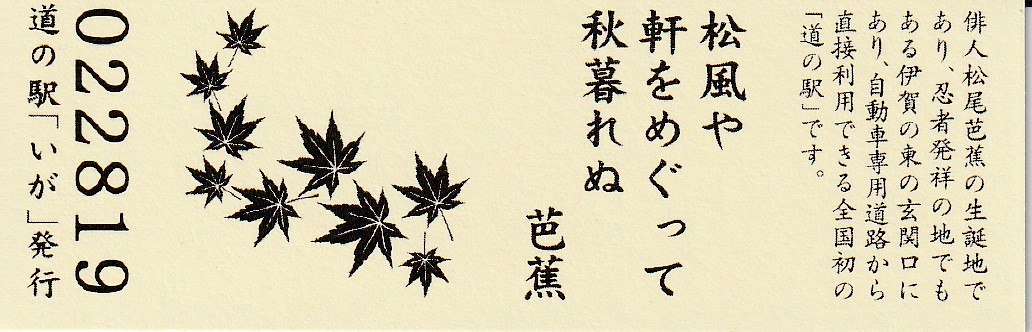 俳人松尾芭蕉の生誕地で
あり、忍者発祥の地でも
ある伊賀の東の玄関口に
あり、自動車専用道路から
直接利用できる全国初の
「道の駅」です。
松風や
軒をめぐって
秋暮れぬ
芭蕉
022819
道の駅「いが」発行